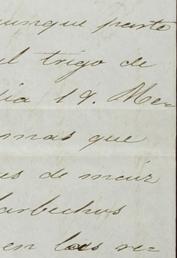 aunque parte
el trigo de
dia 19. Mer-
mas que
es de maiz
barbechos
en las re-